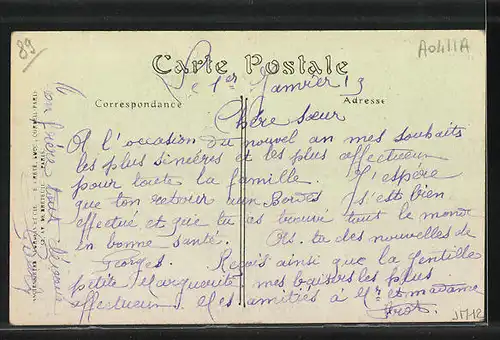 89
A0411A
Carte Postale
Le 1er Janvier 13
Correspondance
Adresse
Chère Sœur
A l'occasion du nouvel an mes souhaits
les plus sinères et les plus affectueux
pour toute la famille. J'espère
que ton retour aux Bordes s'est bien
effectué et que tu as trouvé tout le monde
en bonne santé. As. tu des nouvelles de
Georges. Reçois ainsi que la gentille
petite Marguerite mes baisers les plus
affectueux. Mes amitiés à Mr et madame
Ton frère tout dévoué
J1712